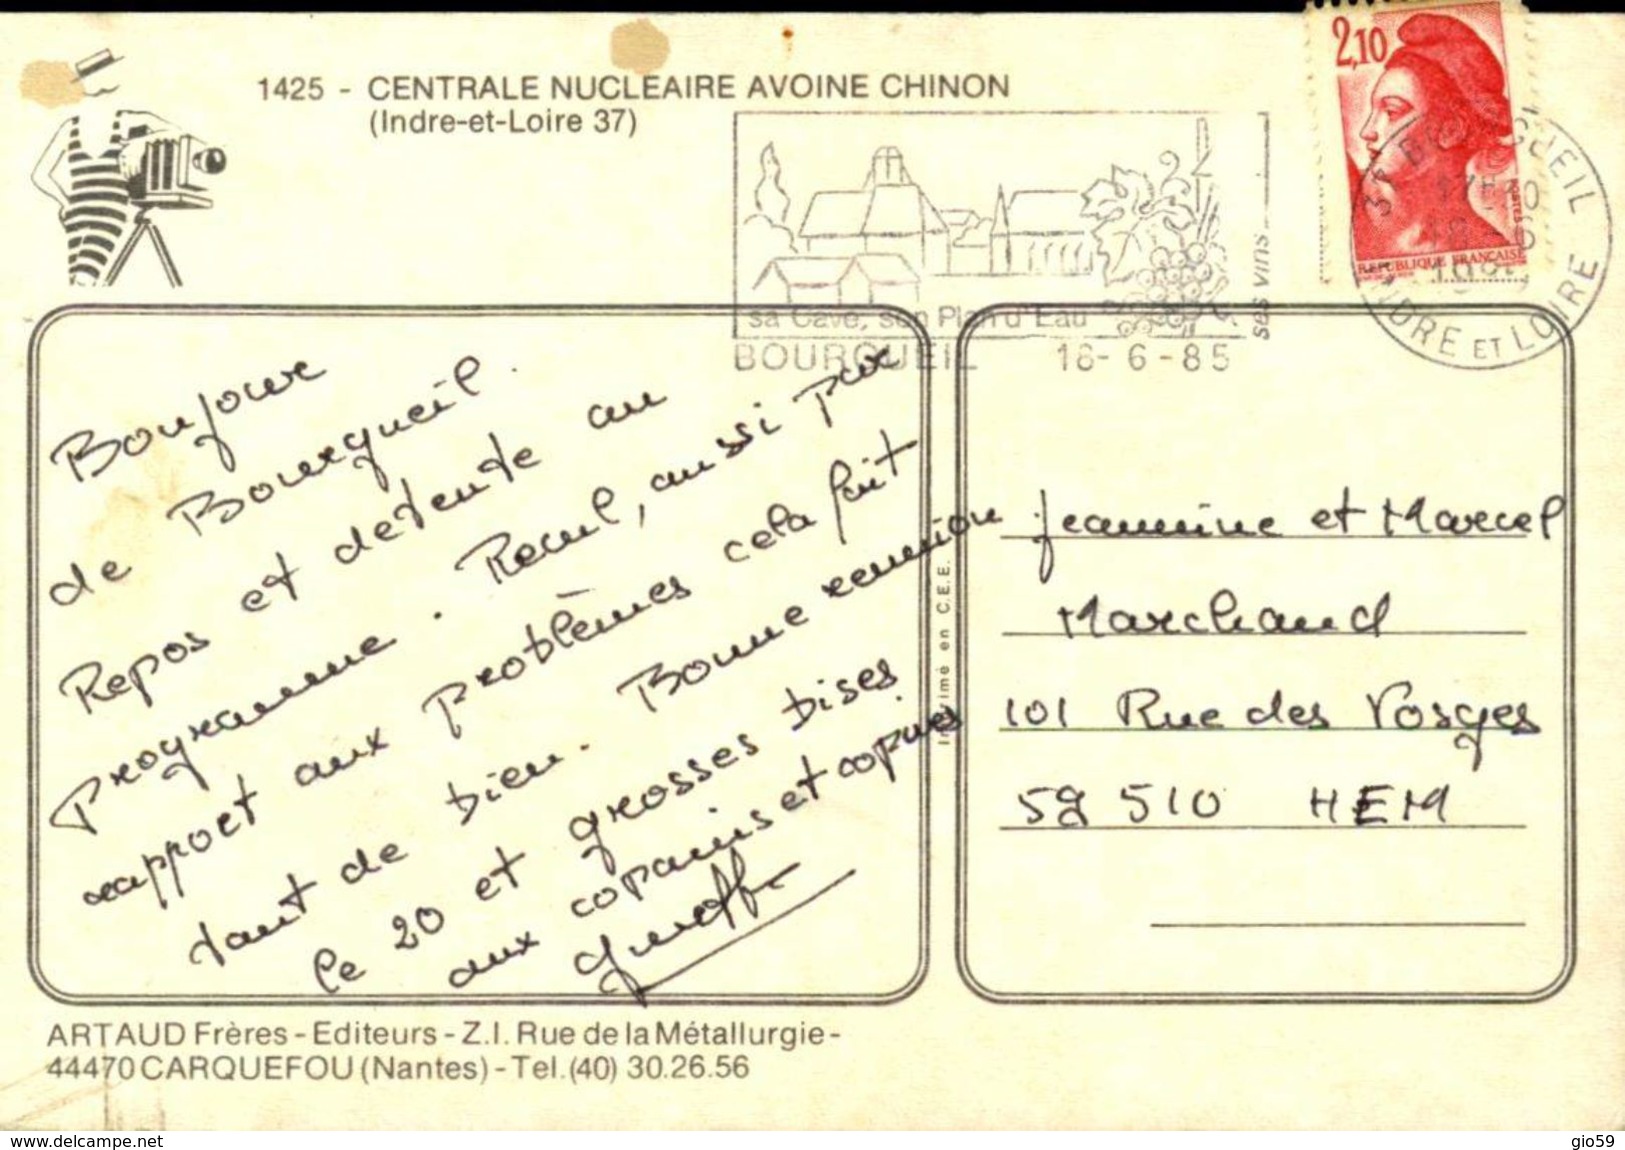 1425 - CENTRALE NUCLEAIRE AVOINE CHINON
(Indre-et-Loire 37)
2,10
POSTES
REPUBLIQUE FRANÇAISE
37 BOURGUEIL
INDRE ET LOIRE
1985
ses vins
sa Cave, son Plan d'Eau
BOURGUEIL 18-6-85
Bonjour
de Bourgueil.
Repos et detente au
programme. Recul, aussi par
rapport aux problèmes cela fait
tant de bien. Bonne reunion
le 20 et grosses bises
aux copains et copines
Imprimé en C.E.E.
Jeannine et Marcel
Marchand
101 Rue des Vosges
59 510 HEM
ARTAUD Frères - Editeurs - Z.I. Rue de la Métallurgie -
44470 CARQUEFOU (Nantes) - Tel. (40) 30.26.56
www.delcampe.net
gio59